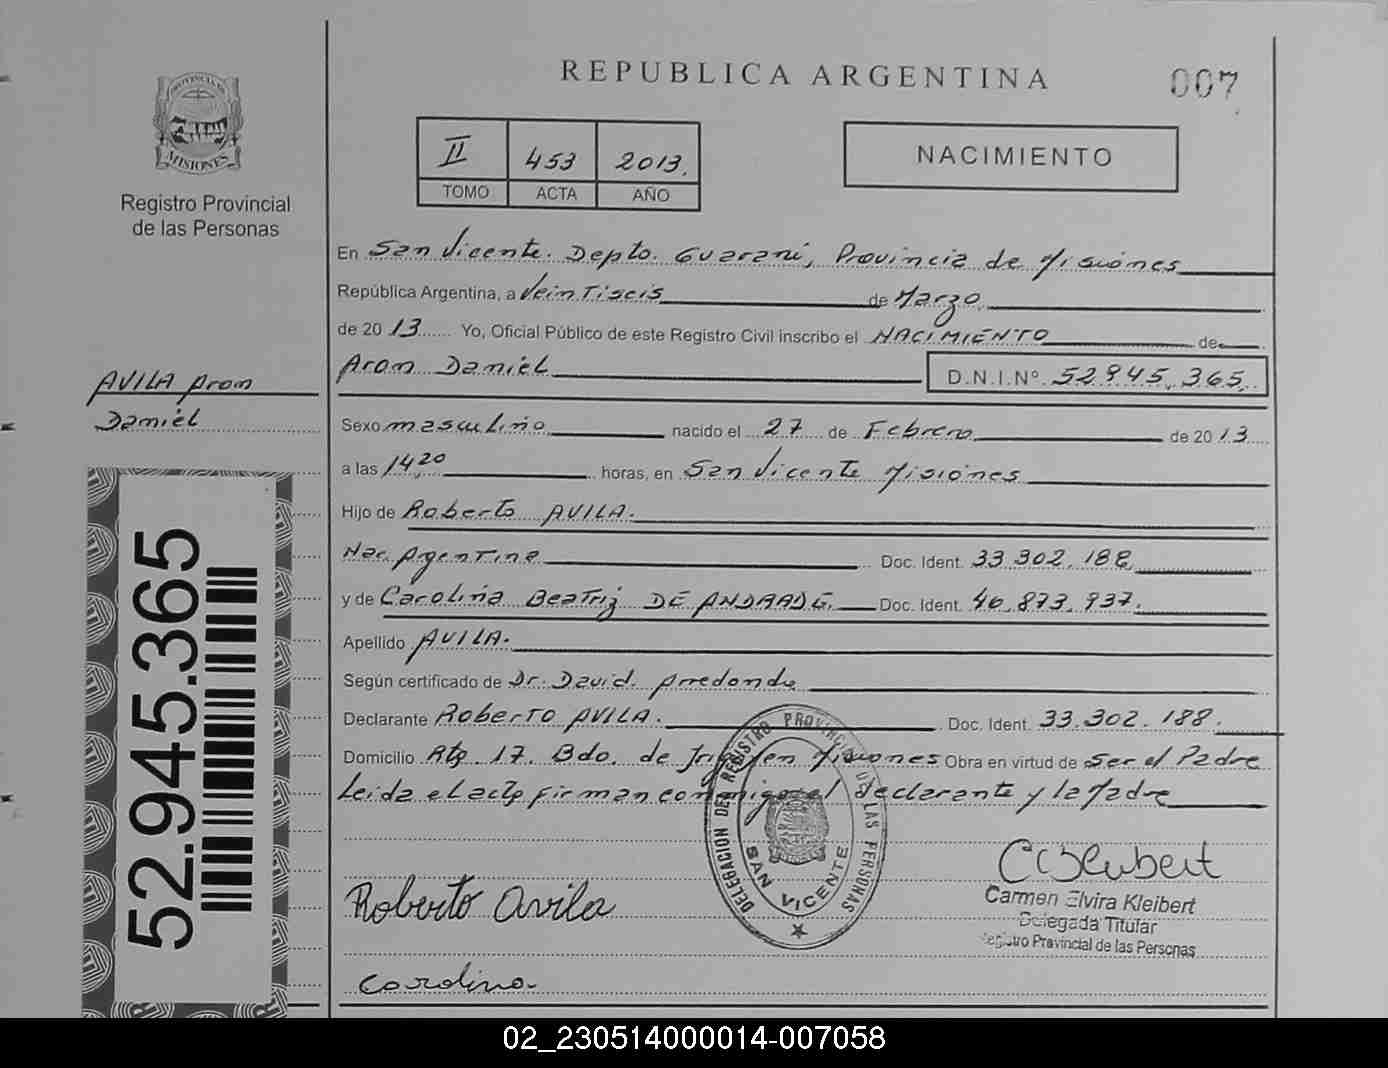 REPUBLICA ARGENTINA
007
PROVINCIA DE
MISIONES
Registro Provincial
de las Personas
II 453 2013.
TOMO ACTA AÑO
NACIMIENTO
En San Vicente. Depto. Guaraní, Provincia de Misiónes
República Argentina, a Veintiseis de Marzo
de 20 13 Yo, Oficial Público de este Registro Civil inscribo el NACIMIENTO de
Aron Daniel D.N.I.Nº 52.945.365.
AVILA Aron
Daniel
Sexo masculino nacido el 27 de Febrero de 20 13
a las 14,20 horas, en San Vicente Misiónes
Hijo de Roberto AVILA.
Nac. Argentina Doc. Ident. 33.302.188
y de Carolina Beatriz DE ANDRADE. Doc. Ident. 46.873.937.
Apellido AVILA.
Según certificado de Dr. David Arredondo
Declarante Roberto AVILA. Doc. Ident. 33.302.188.
Domicilio Rta. 17. Bdo. de Irigoyen Misiones Obra en virtud de Ser el Padre
Leida el acta firman conmigo el declarante y la Madre
52.945.365
DELEGACION DEL REGISTRO PROVINCIAL DE LAS PERSONAS
SAN VICENTE
Roberto Avila
Carmen Elvira Kleibert
Delegada Titular
Registro Provincial de las Personas
Carolina
02_230514000014-007058